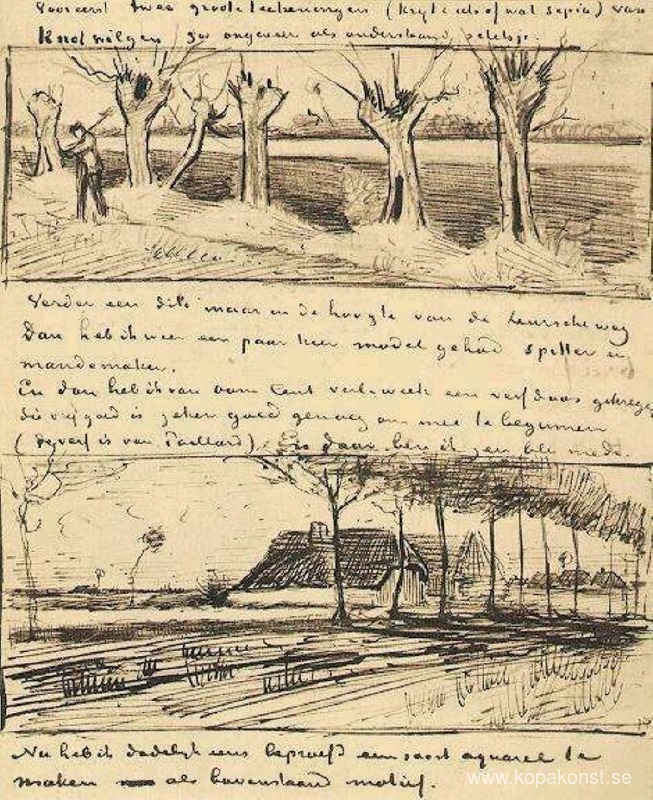 Vooreerst twee groote teekeningen (krijt &  wat sepia) van
Knotwilgen zoo ongeveer als onderstaand schetsje.
Verder een dito maar in de hoogte van de Leurscheweg
Dan heb ik weer een paar keer model gehad spitter en
mandemaker.
En dan heb ik van oom Cent verl. week een verfdoos gekregen
die vrij goed is zeker goed genoeg om mee te beginnen
(de verf is van Paillard). En daar ben ik zeer blij mede.
Nu heb ik dadelijk eens beproefd een soort aquarel te
maken als bovenstaand motief.
www.kopakonst.se